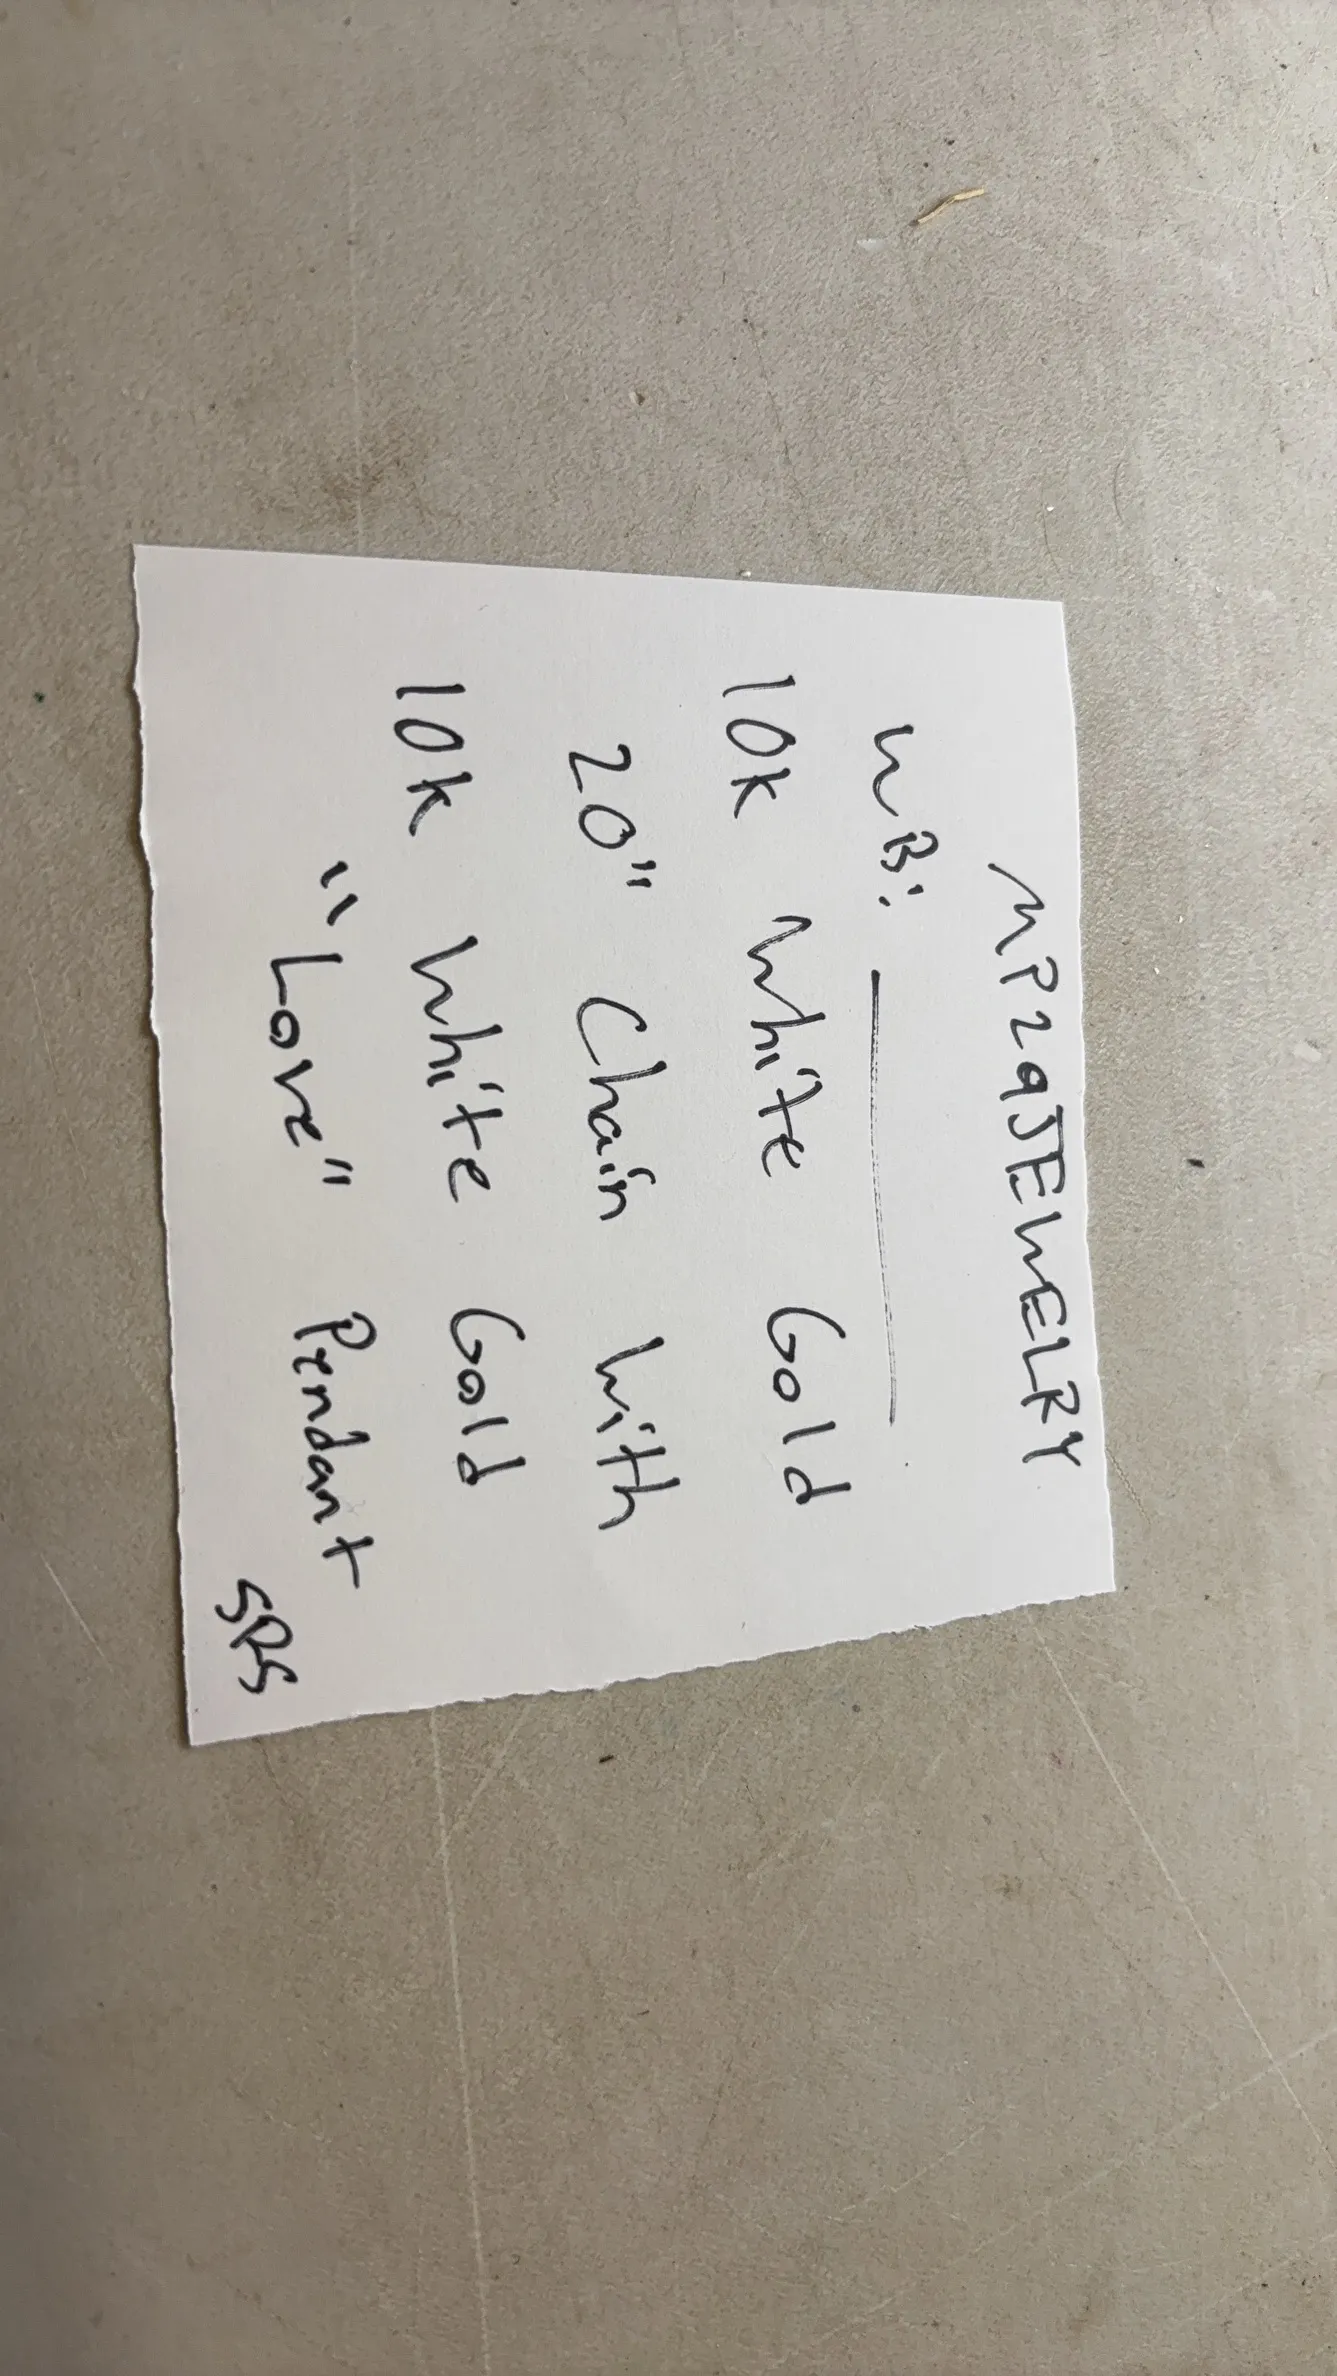 MP29JEWELRY
WB: 
10k White Gold
20" Chain With
10k White Gold
"Love" Pendant
SRS